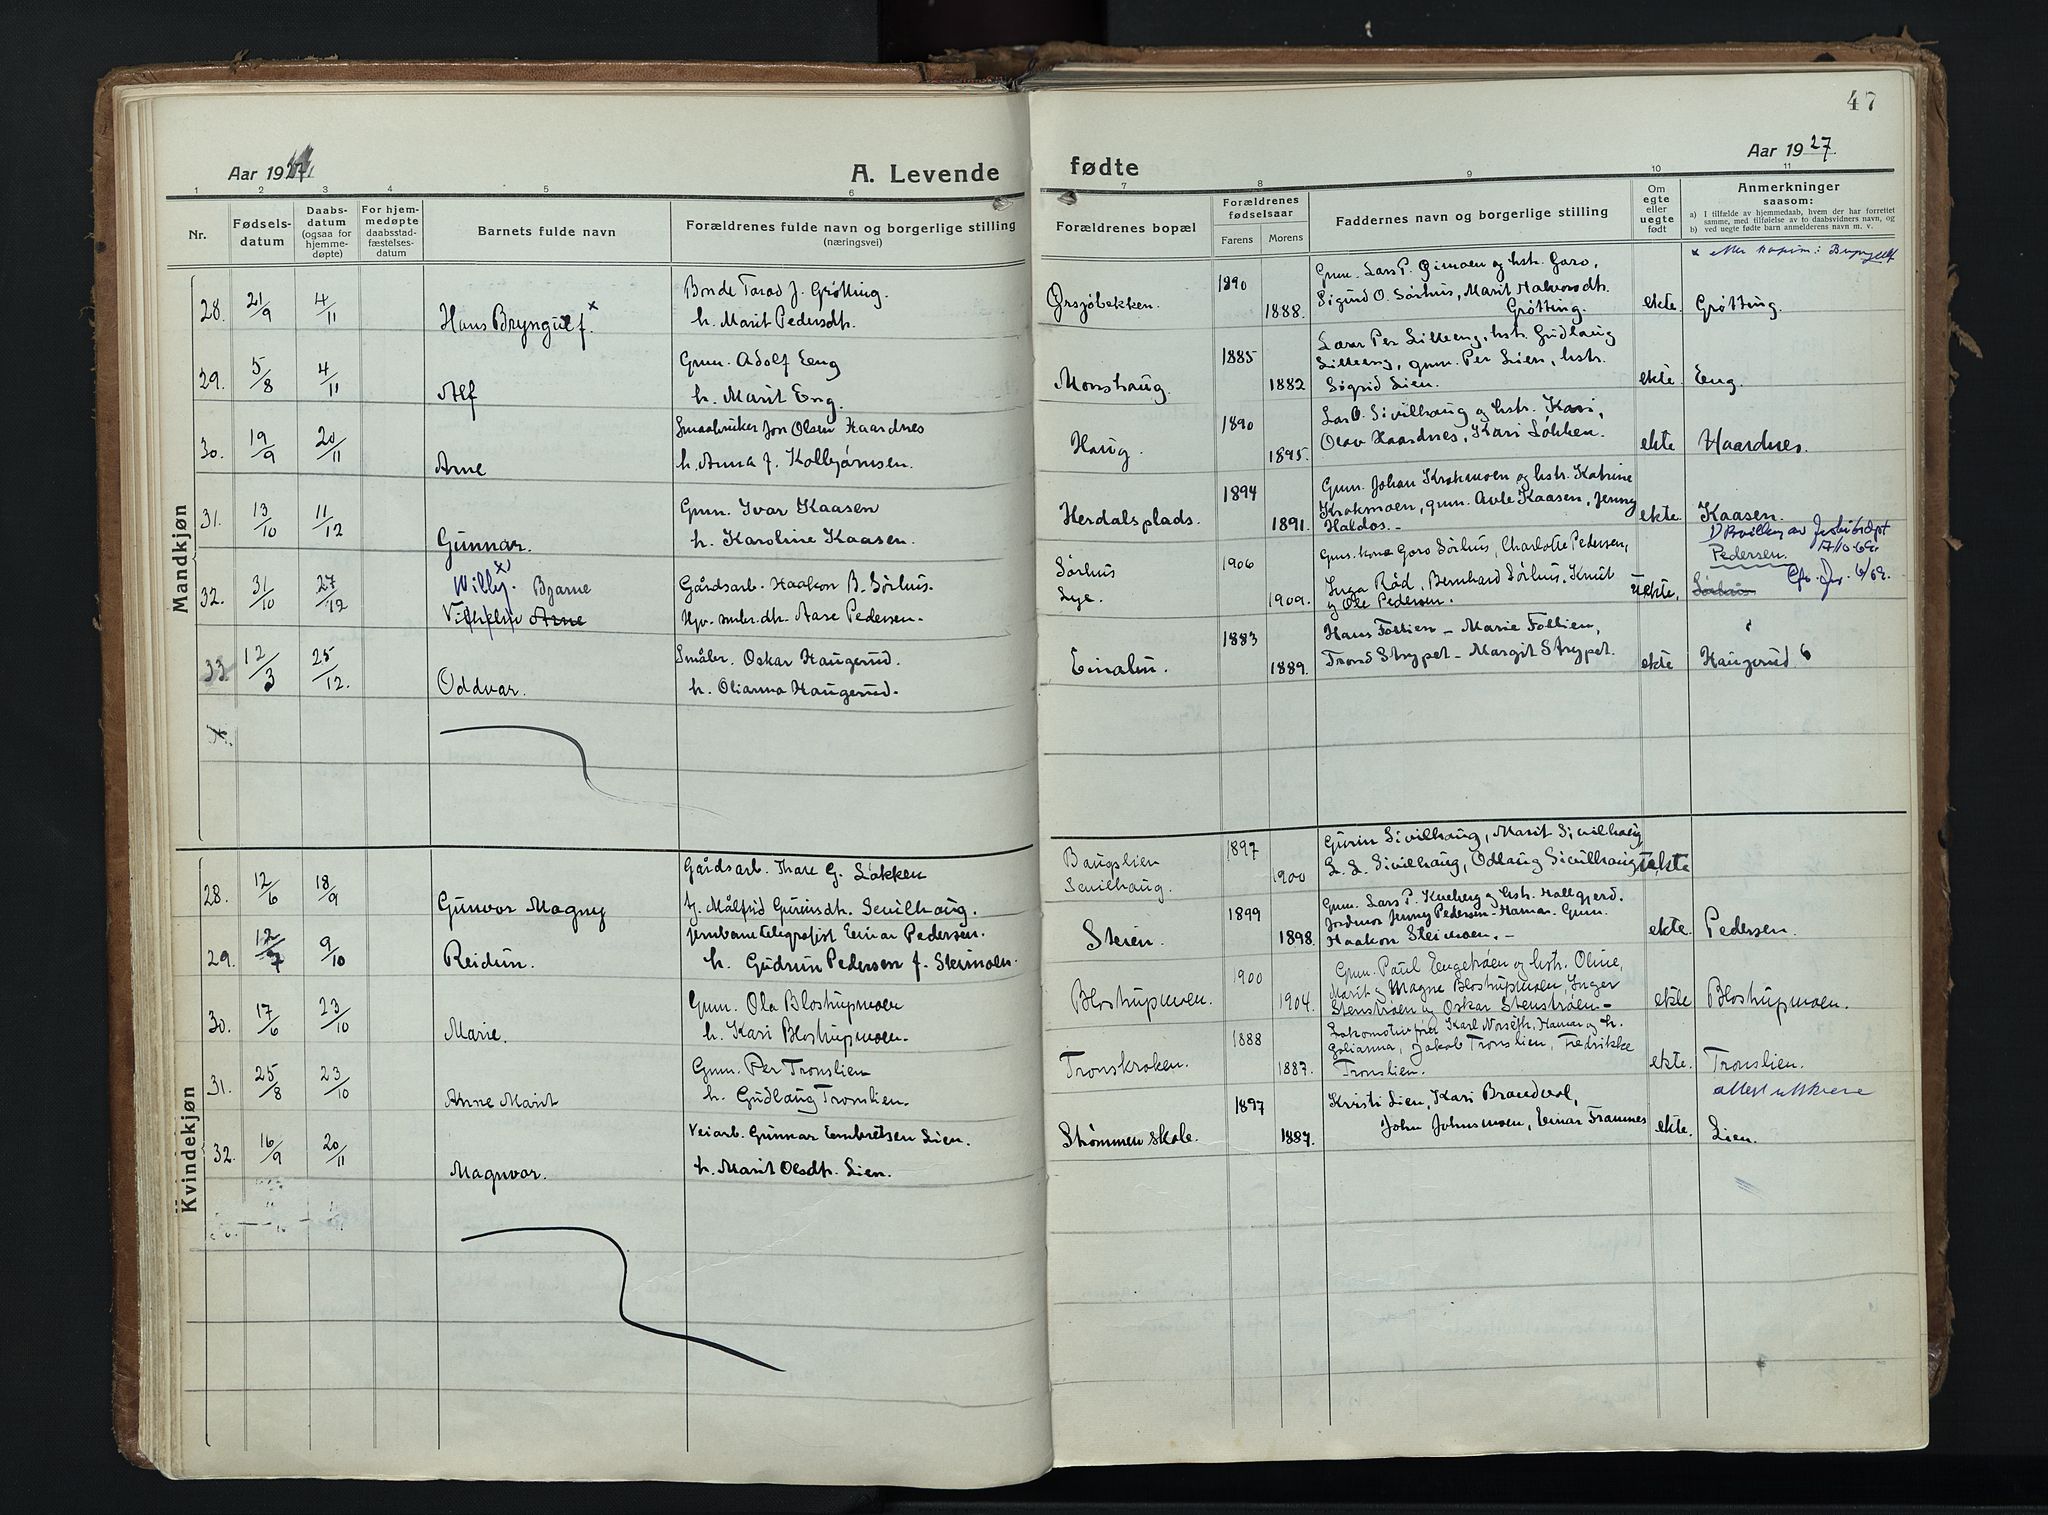 47
Aar 1927
A. Levende
fødte
Aar 1927
1 2 3 4 5 6 7 8 9 10 11
Nr.
Fødsels-
datum
Daabs-
datum
(ogsaa for
hjemme-
døpte)
For hjem-
medøpte
daabsstad-
fæstelses-
datum
Barnets fulde navn
Forældrenes fulde navn og borgerlige stilling
(næringsvei)
Forældrenes bopæl
Forældrenes
fødselsaar
Farens
Morens
Faddernes navn og borgerlige stilling
Om
egte
eller
uegte
født
Anmerkninger
saasom:
a) I tilfælde av hjemmedaab, hvem der har forrettet
samme, med tilføielse av to daabsvidners navn, og
b) ved uegte fødte barn anmelderens navn m. v.
Mandkjøn
28. 21/9 4/11 Hans Bryngulf. x
Bonde Tarad J. Grøtting.
h. Marit Pedersdtr.
Ørsjøbekken. 1890 1888.
Gmn. Lars P. Gimoen og hstr. Goro,
Sigurd O. Sørhus, Marit Halvorsdtr.
Grøtting.
ekte. Grøtting.
29. 5/8 4/11 Alf
Gmn. Adolf Eng
h. Marit Eng.
Monshaug. 1885 1882
Lærer Per Lilleeng, hstr. Gudlaug
Lilleeng, gmn. Per Lien, hstr.
Sigrid Lien.
ekte. Eng.
30. 19/9 20/11 Arne
Smaabruker Jon Olsen Haardnes
h. Anna f. Kolbjørnsen.
Haug. 1890 1895.
Lars O. Sivilhaug og hstr. Kari,
Olav Haardnes, Kari Løkken.
ekte Haardnes.
31. 13/10 11/12 Gunnar.
Gmn. Ivar Kaasen
h. Karoline Kaasen.
Herdalsplads. 1894 1891.
Gmn. Johan Kroksmoen og hstr. Katrine
Kroksmoen, gmn. Avle Kaasen, Jenny
Haldos. -
ekte. Kaasen.
32. 31/10 27/12 Willy. x) Bjarne
Vilhelm Arne
Gårdsarb. Haakon B. Sørhus.
Hjv. smbr.dtr. Aase Pedersen.
Sørhus
Lye. 1906 1909.
Gmn. kone Goro Sørhus, Charlotte Pedersen,
Inga Råd, Bernhard Sørhus, Knut
og Ole Pedersen.
uekte.
Pedersen.
Sørhus
33. 12/3 25/12. Oddvar.
Småbr. Oskar Haugerud.
h. Olianna Haugerud.
Einalen. 1883 1889.
Hans Follien - Marie Follien,
Trond Strypet - Margit Strypet.
ekte Haugerud
Kvindekjøn
28. 12/6 18/9 Gunvor Magny
Gårdsarb. Thare G. Løkken
tj. Målfrid Gurinsdtr. Sevilhaug.
Baugslien
Sevilhaug. 1897 1900
Gurin Sivilhaug, Marit Sivilhaug
L. L. Sivilhaug, Odlaug Sivilhaug
uekte
29. 12/7 9/10 Reidun.
Jernbanetelegrafist Einar Pedersen.
h. Gudrun Pedersen f. Steimoen.
Steien. 1899 1898.
Gmn. Lars P. Kneberg og hstr. Hallgjerd.
Jordmor Jenny Pedersen - Hamar. Gmn.
Haakon Steimoen. -
ekte. Pedersen.
30. 17/6 23/10 Marie.
Gmn. Ola Blostrupmoen
h. Kari Blostrupmoen.
Blostrupmoen. 1900 1904.
Gmn. Paul Engetrøen og hstr. Oline,
Marit og Magne Blostrupmoen, Inger
Stenstrøen og Oskar Stenstrøen -
ekte Blostrupmoen.
31. 25/8 23/10 Anne Marit
Gmn. Per Tronslien
h. Gudlaug Tronslien.
Tronskroken. 1888 1887.
Karl Norseth, Hamar og h.
Golianna, Jakob Tronslien, Fredrikke
Tronslien.
ekte. Tronslien.
32. 16/9 20/11 Magnvor.
Veiarb. Gunnar Embretsen Lien.
h. Marit Olsdtr. Lien.
Strømmen skole. 1897 1887.
Kristi Lien, Kari Brandvol,
John Johnsmoen, Einar Framnes
ekte. Lien.